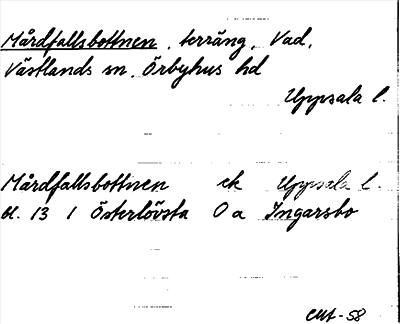 Mårdfallsbottnen, terräng, Vad,
Västlands sn, Örbyhus hd
Uppsala l.
Mårdfallsbottnen ek Uppsala l.
bl. 13 I Österlövsta O a Ingarsbo
-58